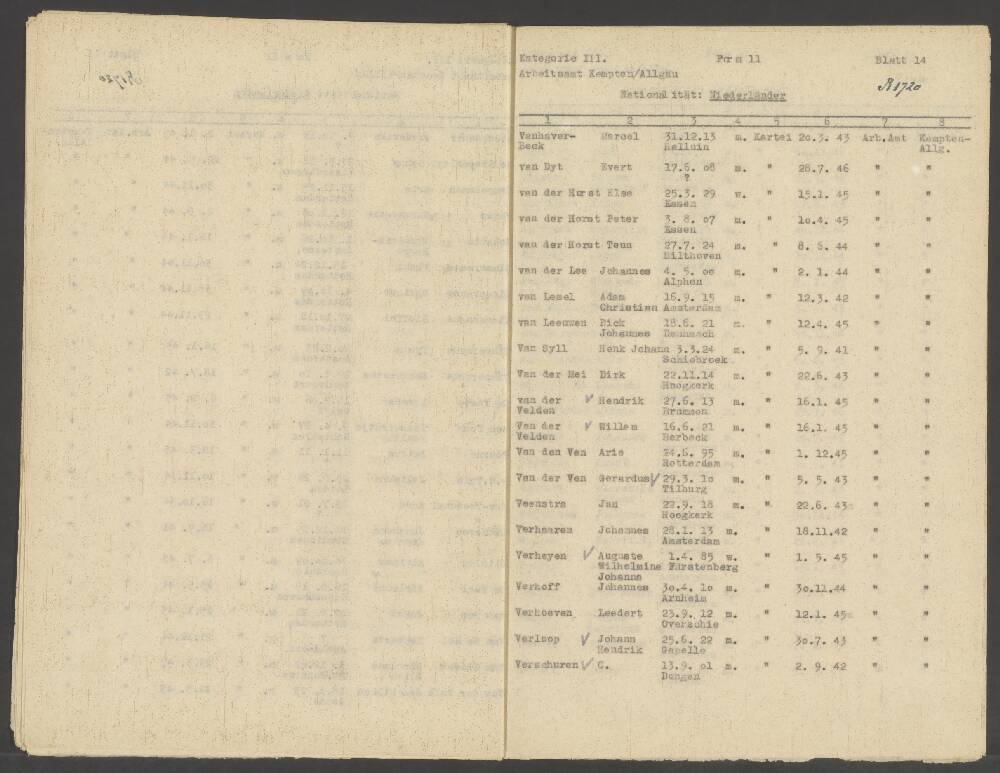 Kategorie III. Form 11 Blatt 14
Arbeitsamt Kempten/Allgäu R1720
Nationalität: Niederländer
1 2 3 4 5 6 7 8
Vanhaver- Marcel 31.12.13 m. Kartei 2o.3. 43 Arb.Amt Kempten-
Beck Halluin Allg.
van Dyt Evert 17.6. o8 m. " 28.7. 46 " "
?
van der Horst Else 25.3. 29 w. " 15.1. 45 " "
Essen
van der Horst Peter 3. 8. o7 m. " 1o.4. 45 " "
Essen
van der Horst Teun 27.7. 24 m. " 8. 6. 44 " "
Bilthoven
van der Lee Johannes 4. 5. oo m. " 2. 1. 44 " "
Alphen
van Lemel Adam 16.9. 15 m. " 12.3. 42 " "
Christian Amsterdam
van Leeuwen Dick 18.6. 21 m. " 12.4. 45 " "
Johannes
Van Syll Henk Johann 3.3.24 m. " 5. 9. 41 " "
Schiebroek
Van der Mei Dirk 22.11.14 m. " 22.6. 43 " "
Hoogkerk
van der Hendrik 27.6. 13 m. " 16.1. 45 " "
Velden Brummen
Van der Willem 16.6. 21 m. " 16.1. 45 " "
Velden Herbeck
Van den Ven Arie 24.6. 95 m. " 1. 12.45 " "
Rotterdam
Van der Ven Gerardus 29.3. 1o m. " 5. 5. 43 " "
Tilburg
Veenstra Jan 22.9. 18 m. " 22.6. 43 " "
Hoogkerk
Verhaaren Johannes 28.1. 13 m. " 18.11.42 " "
Amsterdam
Verheyen Auguste 1.4. 85 w. " 1. 5. 45 " "
Wilhelmine Fürstenberg
Johanna
Verhoff Johannes 3o.4. 1o m. " 3o.11.44 " "
Arnheim
Verhoeven Leedert 23.9. 12 m. " 12.1. 45 " "
Overschie
Verloop Johann 25.6. 22 m. " 3o.7. 43 " "
Hendrik Capelle
Verschuren C. 13.9. o1 m. " 2. 9. 42 " "
Dongen